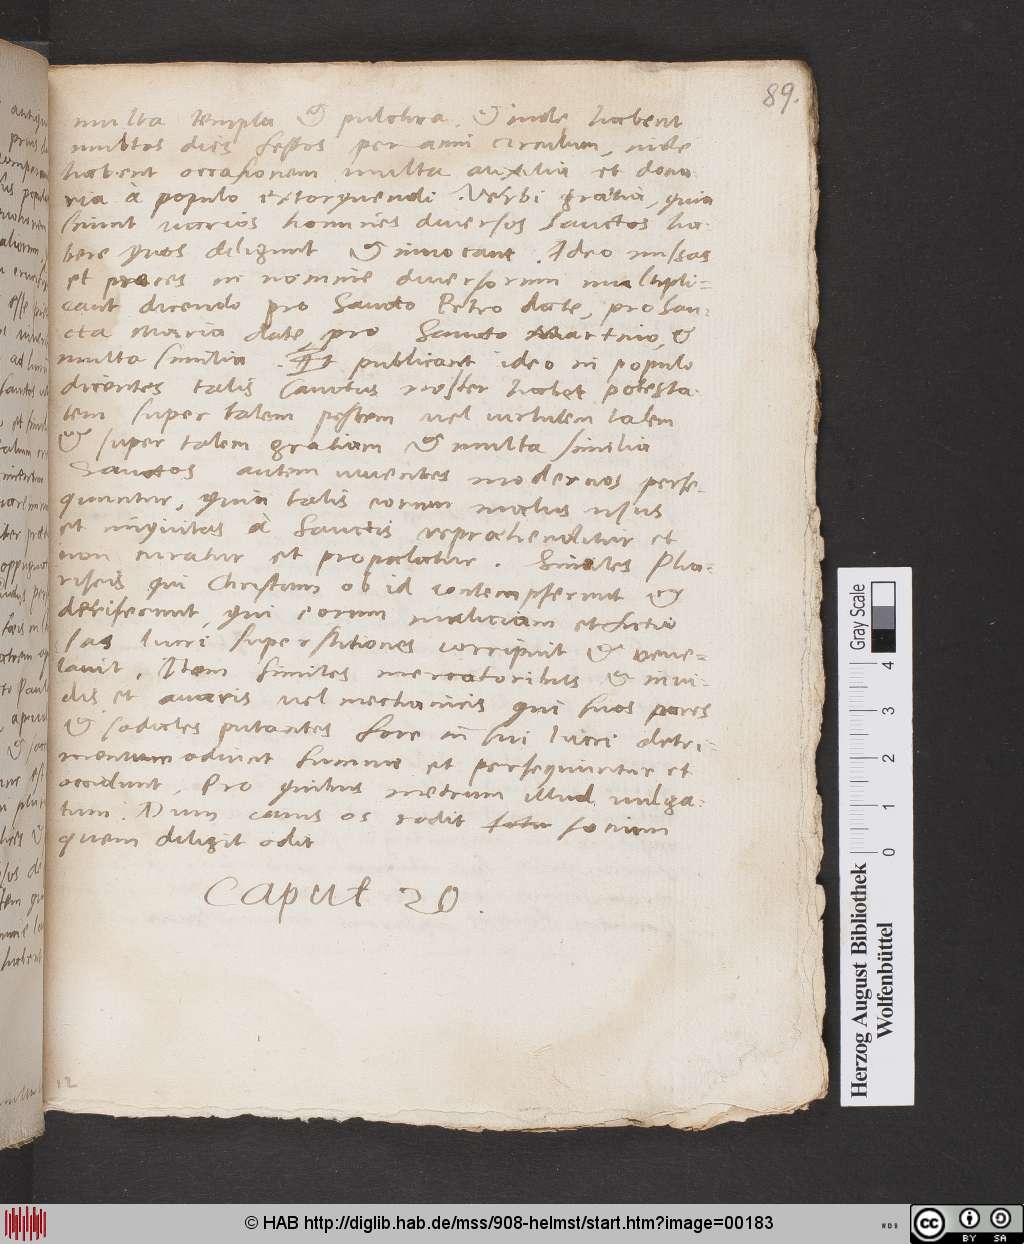 89.
multa templa & pulchra. & inde habent
multos dies festos per anni circulum, inde
habent occasionem multa auxilia et dona-
ria à populo extorquendi. Verbi gratia, quia
sciunt varios homines diversos Sanctos ha-
bere quos diligunt & invocant. Ideo missas
et preces in nomine diversorum multipli=
cant dicendo pro Sancto Petro date, pro San-
cta Maria date, pro Sancto Martino, &
multa similia. Et publicant ideo in populo
dicentes talis Sanctus noster habet potesta-
tem super talem pestem vel virtutem talem
& super talem gratiam & multa similia
Sanctos autem viventes modernos perse-
quuntur, quia talis eorum malus usus
et iniquitas à Sanctis reprehenditur et
non curatur et propalatur. Similes Pha-
riseis qui Christum ob id contempserunt &
deriserunt, qui eorum maliciam et fictio
sas lucri superstitiones corripuit & reve=
lavit. Item similes mercatoribus & invi-
dis et avaris vel mechanicis qui suos pares
& sodales putantes fore in sui lucri detri-
mentum odiunt summe et persequuntur et
occidunt. Pro quibus metrum illud vulga-
tum. Dum canis os rodit socium
quem diligit odit
Caput 20.
12
Gray Scale
0 1 2 3 4
Herzog August Bibliothek
Wolfenbüttel
© HAB http://diglib.hab.de/mss/908-helmst/start.htm?image=00183
WDB
cc BY SA